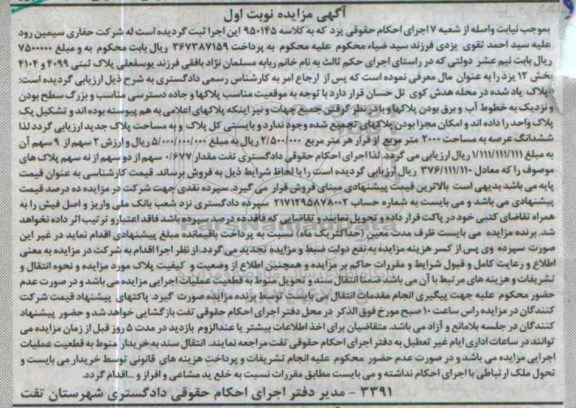 آگهی مزایده نوبت اول
بموجب نیابت واصله از شعبه ۷ اجرای احکام حقوقی یزد که به کلاسه ۹۵۰۱۴۵ این اجرا ثبت گردیده است له شرکت حفاری سیمین رود
علیه سید احمد تقوی یزدی فرزند سید ضیاء محکوم علیه محکوم به پرداخت ۳۶۷۳۸۷۱۵۹ ریال بابت محکوم به و مبلغ ۷۵۰۰۰۰۰
ریال بابت نیم عشر دولتی که در راستای اجرای حکم ثالث به نام خانم ربابه مسلمان نژاد بافقی فرزند یوسفعلی پلاک ثبتی ۴۰۹۹ و ۴۱۰۴
بخش ۱۲ یزد را به عنوان مال معرفی نموده است که پس از ارجاع امر به کارشناس رسمی دادگستری به شرح ذیل ارزیابی گردیده است:
پلاک یاد شده در محله هدش کوی تل حسان قرار دارد با توجه به موقعیت مناسب پلاکها و جاده دسترسی مناسب و بزرگ سطح بودن
و نزدیک به خطوط آب و برق بودن پلاکها و با در نظر گرفتن جمیع جهات و نیز اینکه پلاکهای اعلامی به هم پیوسته بوده اند و تشکیل یک
پلاک واحد را داده اند و امکان مجزا بودن پلاکهای تجمیع شده وجود ندارد و بایستی کل پلاک و به مساحت پلاک جدید ارزیابی گردد لذا
ششدانگ عرصه به مساحت ۲۰۰۰ متر مربع از قرار هر متر مربع ۲/۵۰۰/۰۰۰ ریال به مبلغ ۵/۰۰۰/۰۰۰/۰۰۰ ریال و ارزش ۲ سهم از ۹ سهم آن
به مبلغ ۱/۱۱۱/۱۱۱/۱۱۱ ریال ارزیابی می گردد. لذا اجرای احکام حقوقی دادگستری تفت مقدار ۰/۶۷۷ سهم از دو سهم از نه سهم پلاک های
موصوف را که معادل ۳۷۶/۱۱۱/۱۱۰ ریال ارزیابی گردیده است را با لحاظ شرایط ذیل به فروش برساند. قیمت کارشناسی به عنوان قیمت
پایه می باشد بدیهی است بالاترین قیمت پیشنهادی مبنای فروش قرار می گیرد. سپرده نقدی جهت شرکت در مزایده ده درصد قیمت
پیشنهادی می باشد و می بایست به شماره حساب ۲۱۷۱۲۹۵۸۷۸۰۰۲ سپرده دادگستری نزد شعب بانک ملی واریز و اصل فیش را به
همراه تقاضای کتبی خود در پاکت قرار داده و تحویل نمایند و تقاضایی که فاقد ده درصد سپرده باشد فاقد اعتبار و ترتیب اثر داده نخواهد
شد. برنده مزایده می بایست ظرف مدت معین (حداکثر یک ماه) نسبت به پرداخت باقیمانده مبلغ پیشنهادی اقدام نماید در غیر این
صورت سپرده وی پس از کسر هزینه مزایده به نفع دولت ضبط و مزایده تجدید می گردد. از نظر اجرا اقدام به شرکت در مزایده به معنی
اطلاع و رعایت کامل و قبول شرایط و مقررات حاکم بر مزایده و همچنین اطلاع از وضعیت و کیفیت پلاک مورد مزایده و نحوه انتقال و
تشریفات و هزینه های مرتبط با آن می باشد ضمنا انتقال سند و تحویل منوط به قطعیت عملیات اجرایی مزایده می باشد و در صورت عدم
حضور محکوم علیه جهت پیگیری انجام مقدمات انتقال می بایست توسط برنده مزایده صورت گیرد. پاکتهای پیشنهاد قیمت شرکت
کنندگان در مزایده راس ساعت ۱۰ صبح مورخ فوق الذکر در محل دفتر اجرای احکام حقوقی تفت بازگشایی خواهد شد و حضور پیشنهاد
کنندگان در جلسه بلامانع و آزاد می باشد. متقاضیان برای اخذ اطلاعات بیشتر یا عندالزوم بازدید در مدت ۵ روز قبل از زمان مزایده می
توانند در ساعات اداری ایام غیر تعطیل به دفتر اجرای احکام حقوقی تفت مراجعه نمایند. انتقال سند به خریدار منوط به قطعیت عملیات
اجرایی مزایده می باشد و در صورت عدم حضور محکوم علیه انجام تشریفات و پرداخت هزینه های قانونی توسط خریدار می بایست و
تحول ملک ارتباطی با اجرای احکام نداشته و می بایست مطابق مقررات نسبت به خلع ید مشاعی و افراز و ... اقدام گردد.
۳۳۹۱ - مدیر دفتر اجرای احکام حقوقی دادگستری شهرستان تفت